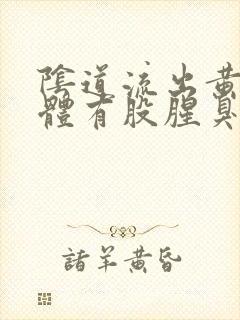 陰道流出黄
體有股腥臭
諸羊黄昏